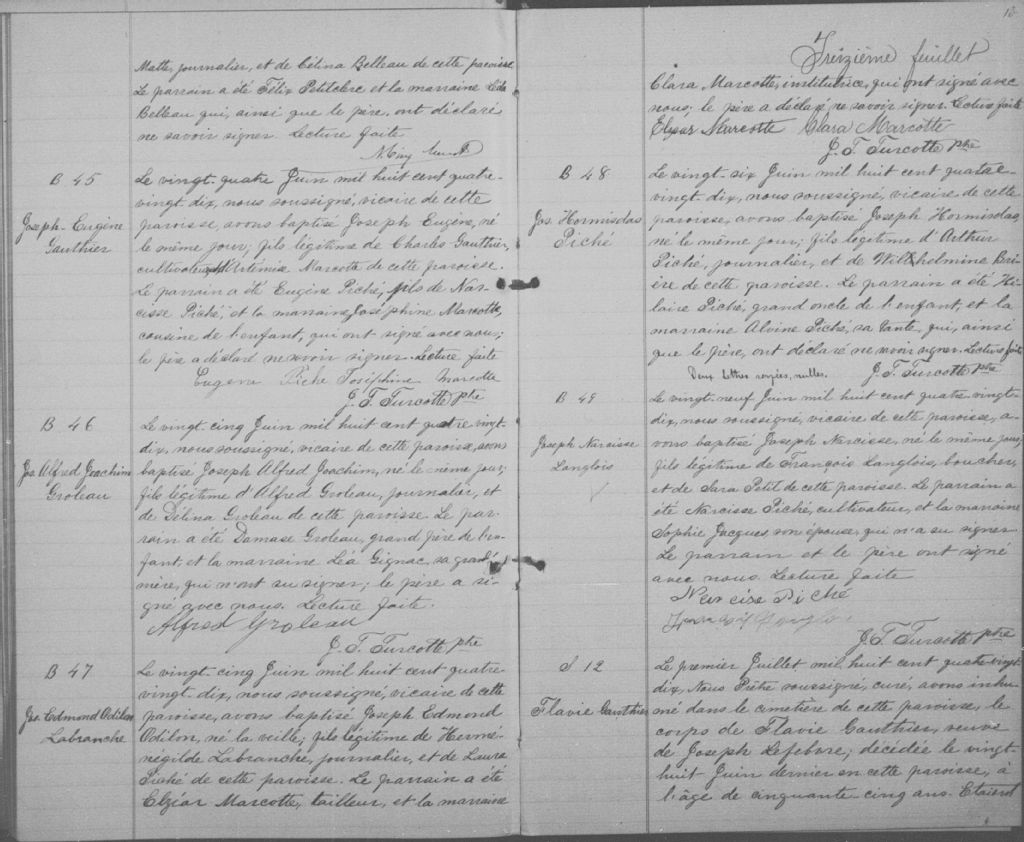 Matte, journalier, et de Célina Belleau de cette paroisse.
Le parrain a été Félix Petitclerc et la marraine Léda
Belleau qui, ainsi que le père, ont déclaré
ne savoir signer. Lecture faite
B 45
Joseph-Eugène
Gauthier
Le vingt-quatre Juin mil huit cent quatre-
vingt-dix, nous soussigné, vicaire de cette
paroisse, avons baptisé Joseph Eugène, né
le même jour; fils légitime de Charles Gauthier,
cultivateur, et d'Artémise Marcotte de cette paroisse.
Le parrain a été Eugène Piché, fils de Nar-
cisse Piché, et la marraine, Joséphine Marcotte,
cousine de l'enfant, qui ont signé avec nous;
le père a déclaré ne savoir signer. Lecture faite
Eugène Piché Joséphine Marcotte
J. T. Turcotte ptre
B 46
Jos. Alfred Joachim
Groleau
Le vingt-cinq Juin mil huit cent quatre vingt-
dix, nous soussigné, vicaire de cette paroisse, avons
baptisé Joseph Alfred Joachim, né le même jour;
fils légitime d'Alfred Groleau, journalier, et
de Délina Groleau de cette paroisse. Le par-
rain a été Damase Groleau, grand père de l'en-
fant, et la marraine Léa Gignac, sa grand'
mère, qui n'ont su signer; le père a si-
gné avec nous. Lecture faite.
Alfred Groleau
J. T. Turcotte ptre
B 47
Jos. Edmond Odilon
Labranche
Le vingt-cinq Juin mil huit cent quatre-
vingt-dix, nous soussigné, vicaire de cette
paroisse, avons baptisé Joseph Edmond
Odilon, né la veille; fils légitime de Hermé-
négilde Labranche, journalier, et de Laura
Piché de cette paroisse. Le parrain a été
Elzéar Marcotte, tailleur, et la marraine
Treizième feuillet
Clara Marcotte, institutrice, qui ont signé avec
nous; le père a déclaré ne savoir signer. Lecture faite
Elzéar Marcotte Clara Marcotte
J. T. Turcotte ptre
B 48
Jos. Hormisdas
Piché
Le vingt-six Juin mil huit cent quatre-
vingt-dix, nous soussigné, vicaire de cette
paroisse, avons baptisé Joseph Hormisdas,
né le même jour; fils légitime d'Arthur
Piché, journalier, et de Wilhelmine Bri-
ère de cette paroisse. Le parrain a été Hi-
laire Piché, grand oncle de l'enfant, et la
marraine Alvine Piché, sa tante, qui, ainsi
que le père, ont déclaré ne savoir signer. Lecture faite
Deux lettres rayées, nulles. J. T. Turcotte ptre
B 49
Joseph Narcisse
Langlois
Le vingt-neuf Juin mil huit cent quatre vingt-
dix, nous soussigné, vicaire de cette paroisse, a-
vons baptisé Joseph Narcisse, né le même jour;
fils légitime de François Langlois, boucher,
et de Sara Petit de cette paroisse. Le parrain a
été Narcisse Piché, cultivateur, et la marraine
Sophie Jacques, son épouse, qui n'a su signer.
Le parrain et le père ont signé
avec nous. Lecture faite
Narcise Piché
J. T. Turcotte ptre
S 12
Flavie Gauthier
Le premier Juillet mil huit cent quatre-vingt
dix, Nous Prêtre soussigné, curé, avons inhu-
mé dans le cimetière de cette paroisse, le
corps de Flavie Gauthier, veuve
de Joseph Lefebvre; décédée le vingt
huit Juin dernier en cette paroisse, à
l'âge de cinquante cinq ans. Etaient